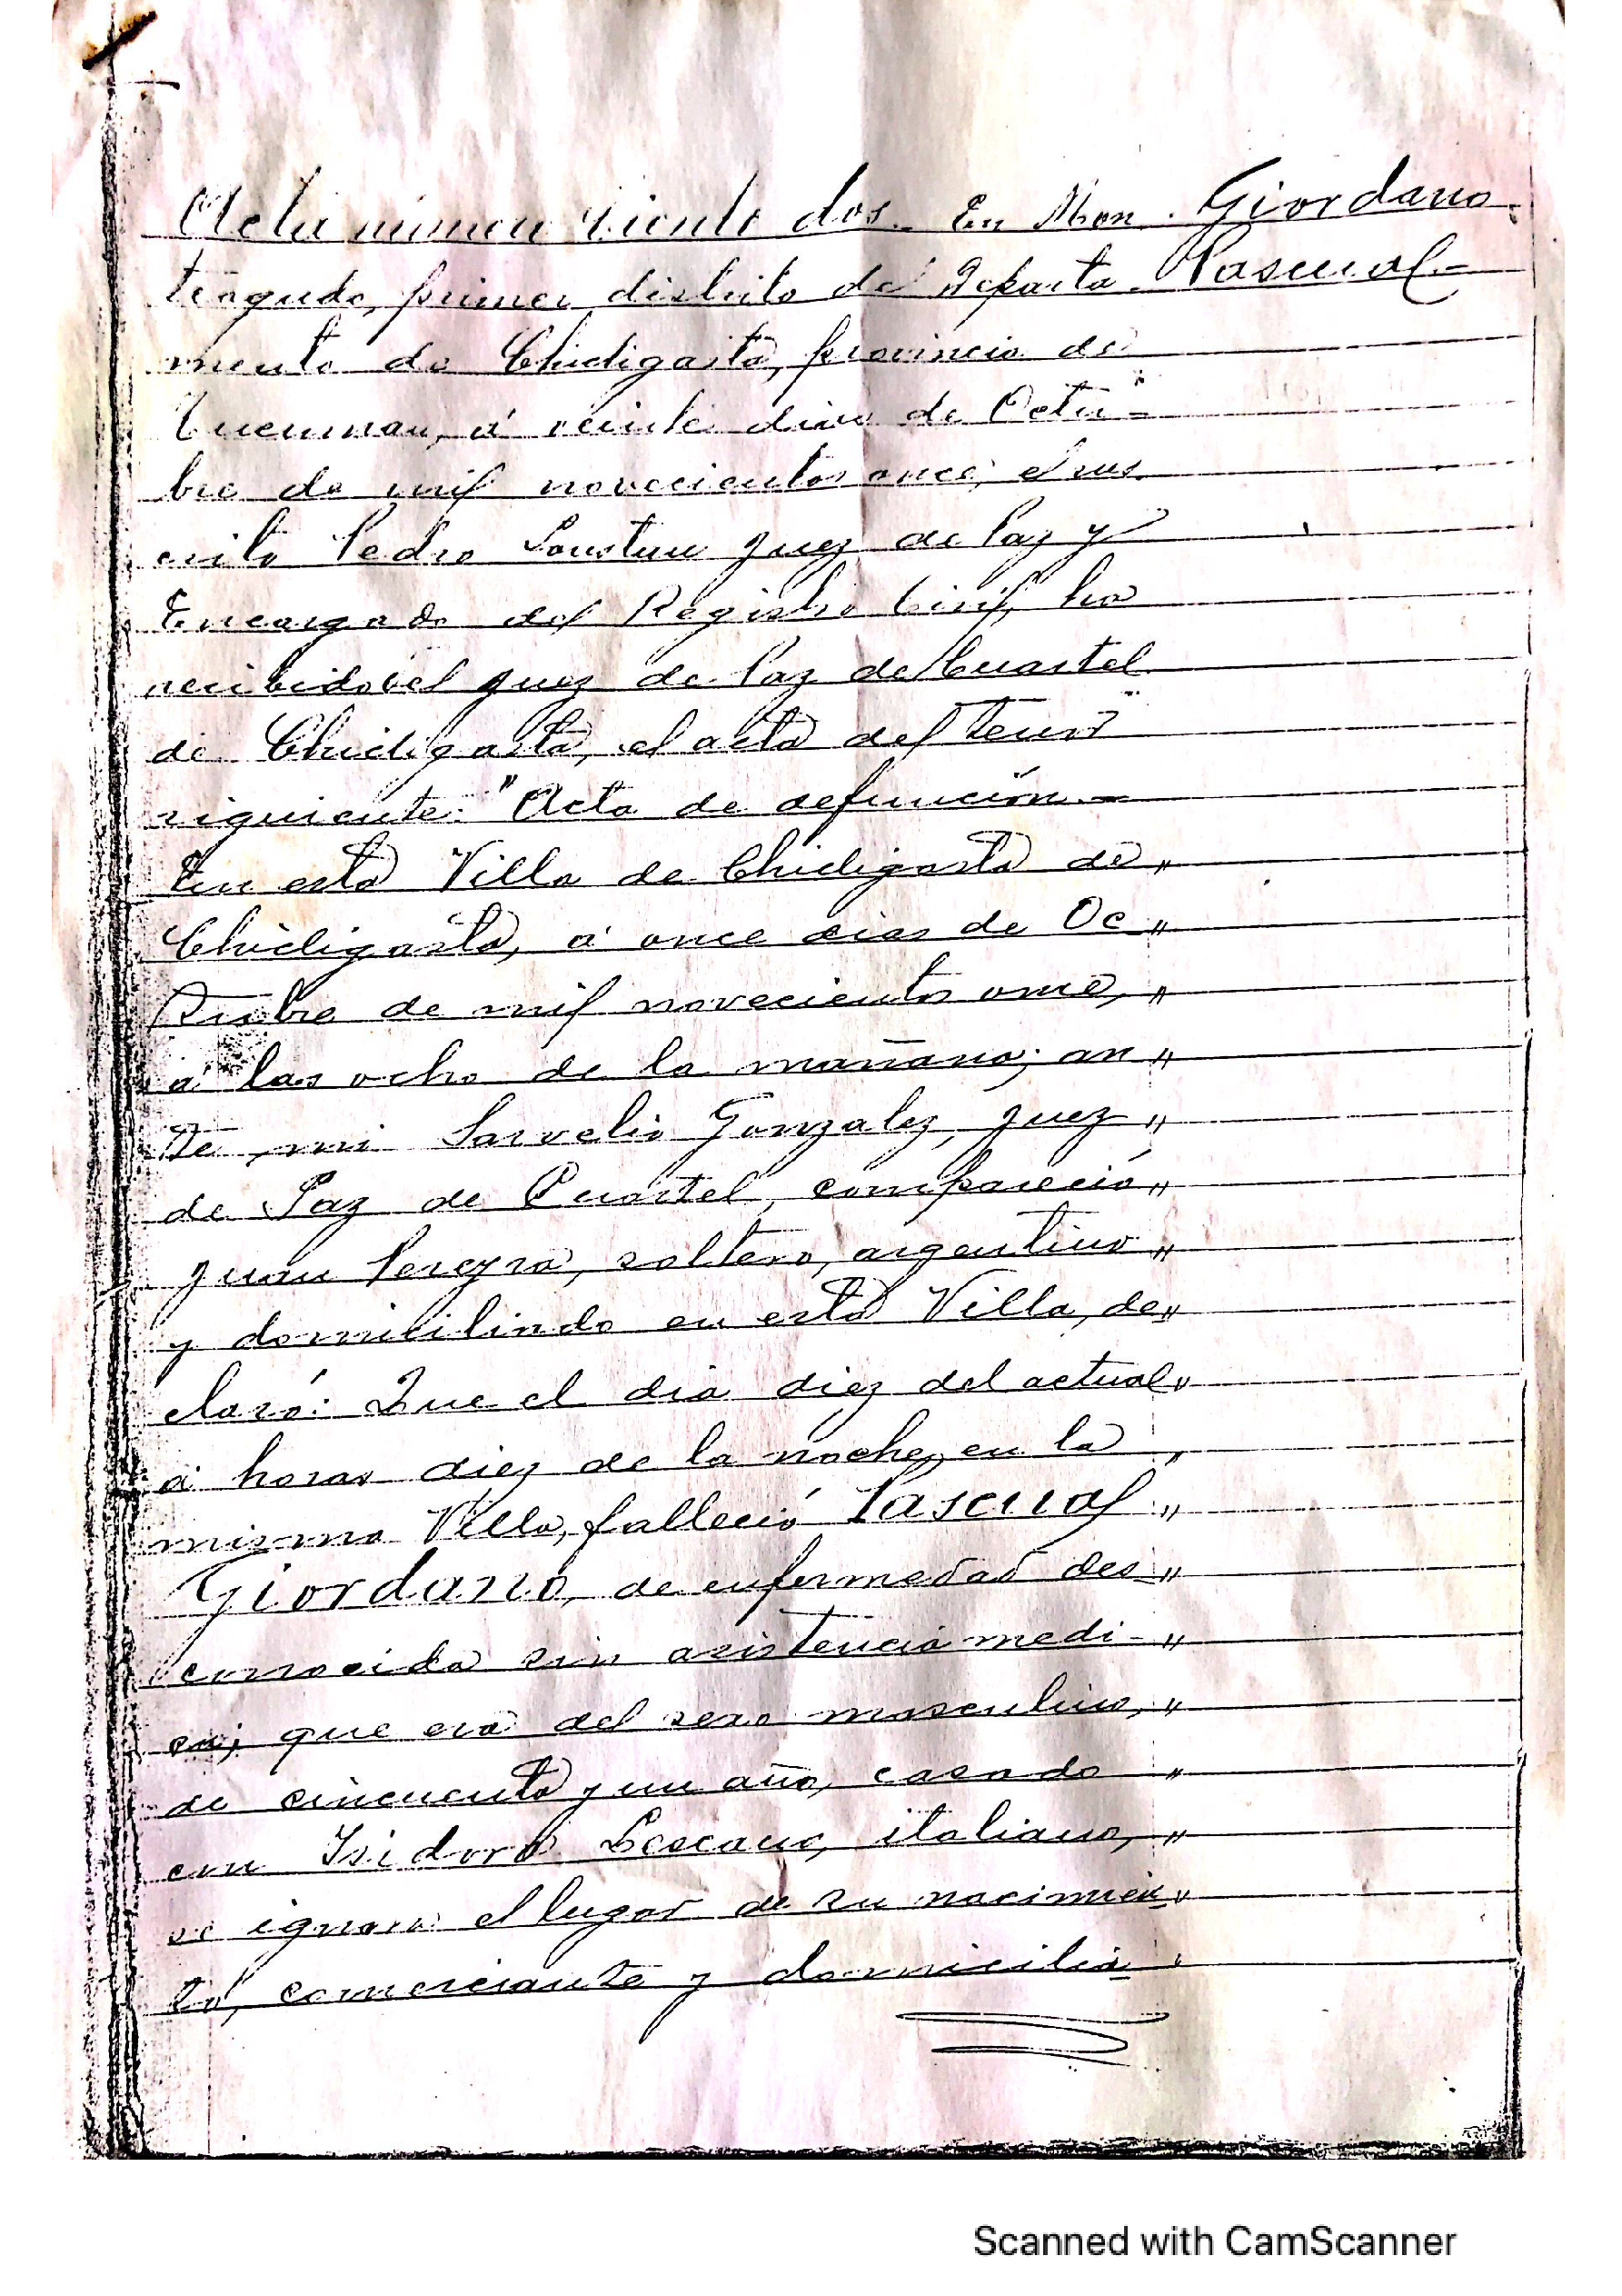 Acta número ciento dos.- En Mon- Giordano
teagudo, primer distrito del Departa- Pascual-
mento de Chicligasta, provincia de
Tucuman, á veinte dias de Octu-
bre de mil novecientos once; el sus-
crito Pedro Juez de Paz y
Encargado del Registro Civil, ha
recibido del Juez de Paz de Cuartel
de Chicligasta, el acta del tenor
siguiente: "Acta de defunción.-
En esta Villa de Chicligasta de "
Chicligasta, á once dias de Oc "
tubre de mil novecientos once, "
á las ocho de la mañana; an "
te mi Sarvelio Gonzalez, Juez "
de Paz de Cuartel, compareció "
Juan Pereyra, soltero, argentino "
y domiciliado en esta Villa, de "
claró: Que el dia diez del actual "
á horas diez de la noche, en la "
misma Villa, falleció Pascual "
Giordano, de enfermedad des "
conocida sin asistencia medi- "
ca; que era del sexo masculino, "
de cincuenta y un año, casado "
con Isidora italiano, "
se ignora el lugar de su nacimien "
to, comerciante y domicilia "
Scanned with CamScanner